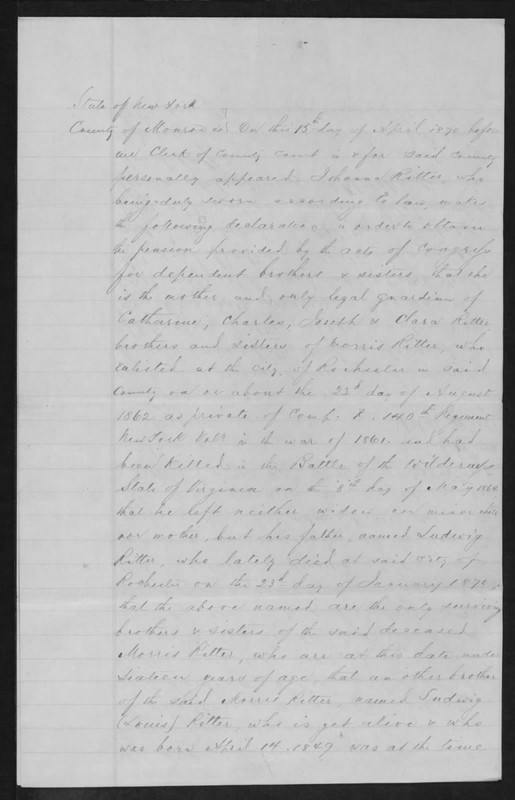 State of New York
County of Monroe ss On this 15th day of April 1870 before
me Clerk of County Court in & for said County
personally appeared Johanna Ritter, who
being duly sworn according to law makes
the following declaration in order to obtain
the pension provided by the acts of Congress
for dependent brothers & sisters, that she
is the mother and only legal guardian of
Catharine, Charles, Joseph & Clara Ritter
brothers and sisters of Morris Ritter, who
enlisted at the city of Rochester in said
County on or about the 22d day of August
1862 as private of Comp. 140th Regiment
New York Vols in the war of 1861 and had
been killed in the Battle of the Wilderness
State of Virginia on the day of May 1864
that he left neither widow nor minor child
nor mother, but his father, named Ludwig
Ritter, who lately died at said city of
Rochester on the 23d day of January
that the above named are the only surviving
brothers & sisters of the said deceased
Morris Ritter, who are at this date under
sixteen years of age, that an other brother
of the said Morris Ritter, named Ludwig
(Louis) Ritter, who is yet alive & who
was born April 14. 1849 was at the time